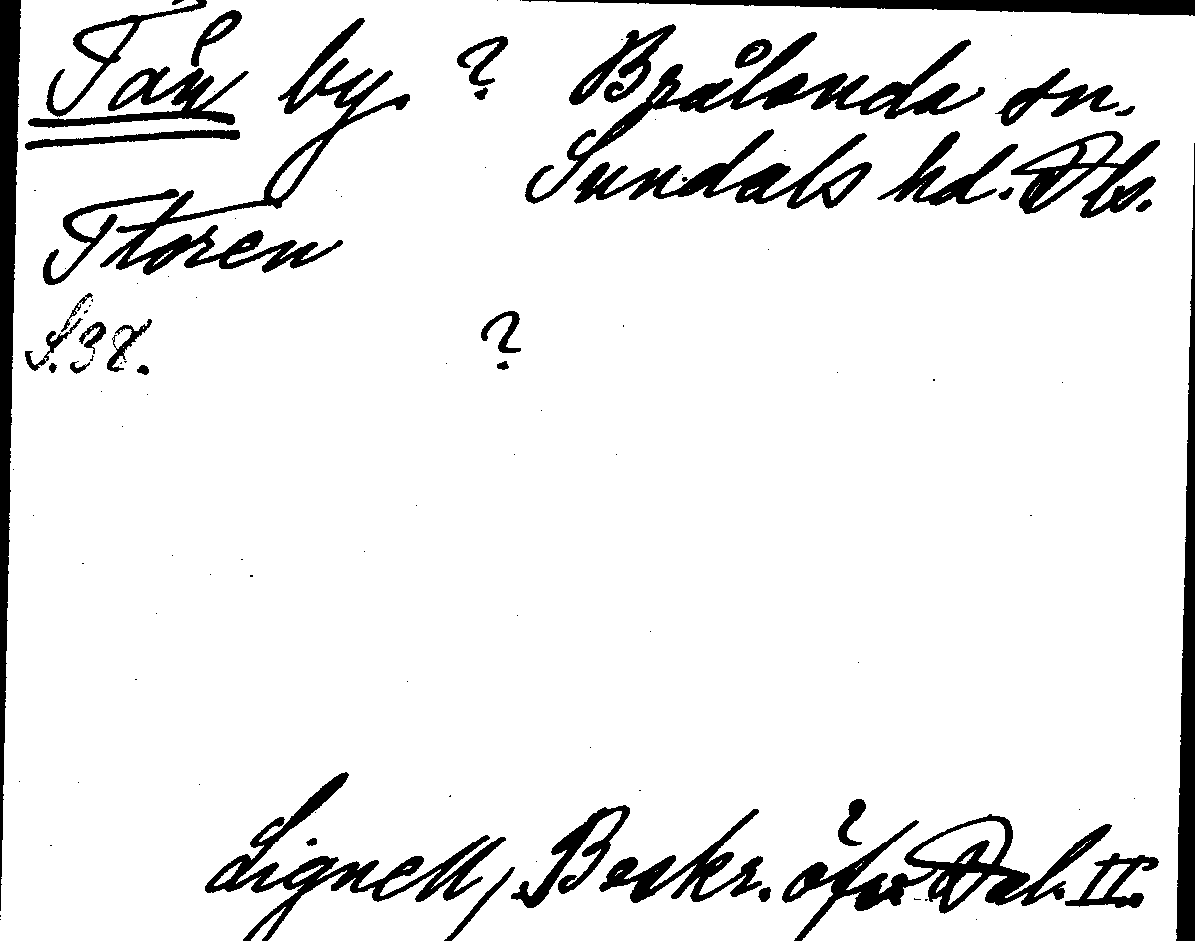 Tån by. ? Brålanda sn.
Sundals hd. Dls.
Ttoren
S.38. ?
Lignell, Beskr. öfver Dal. II.